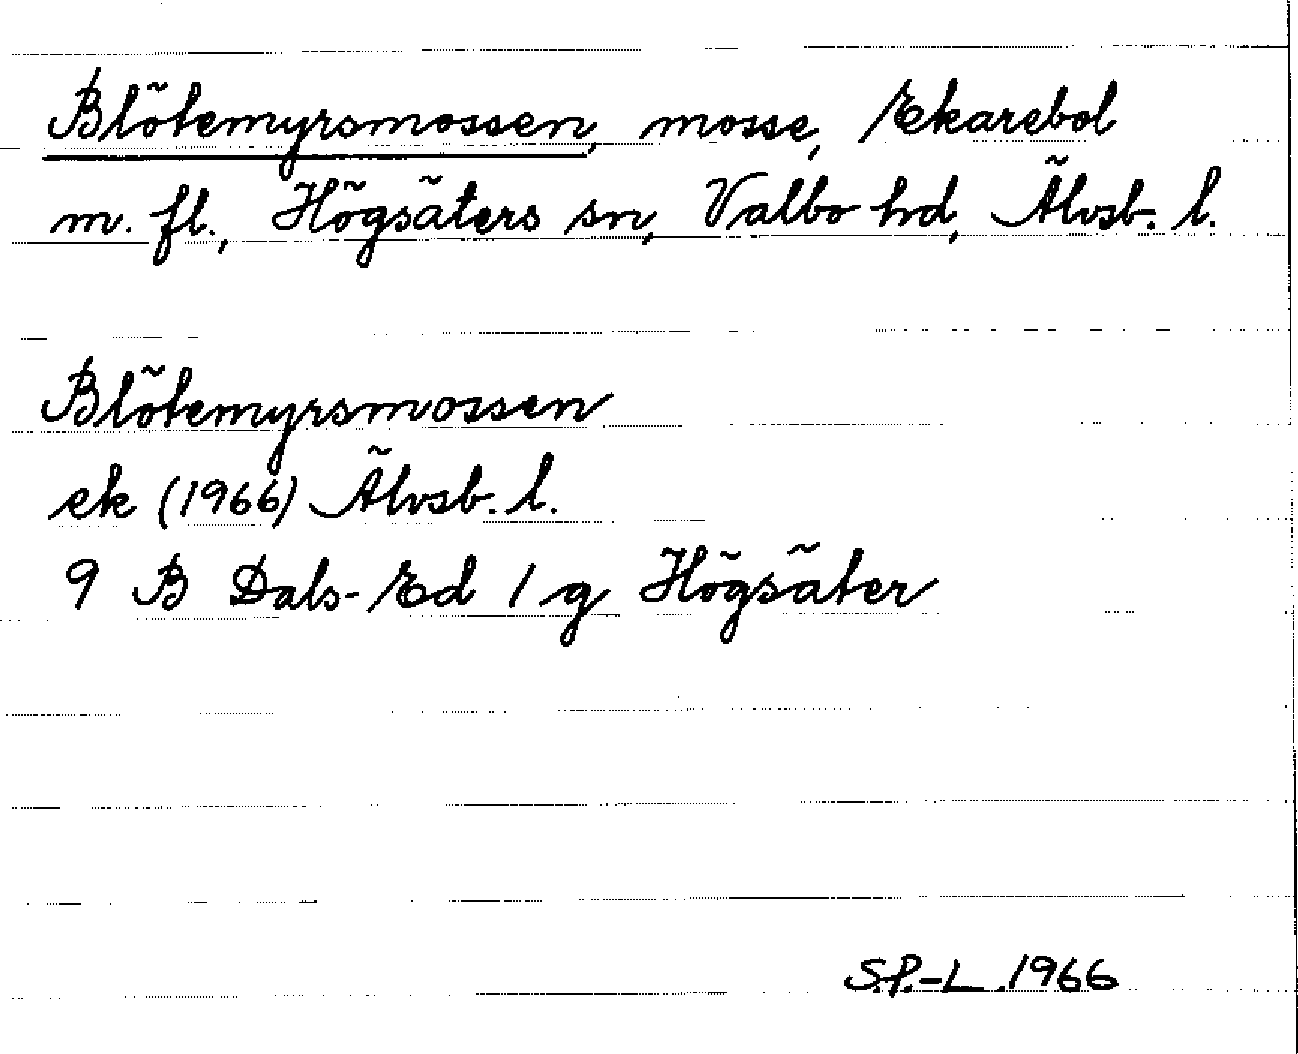 Blötemyrsmossen, mosse, Ekarebol
m. fl., Högsäters sn, Valbo hd, Älvsb. l.
Blötemyrsmossen
ek (1966) Älvsb. l.
9 B Dals-Ed 1 g Högsäter
S.P.-L. 1966